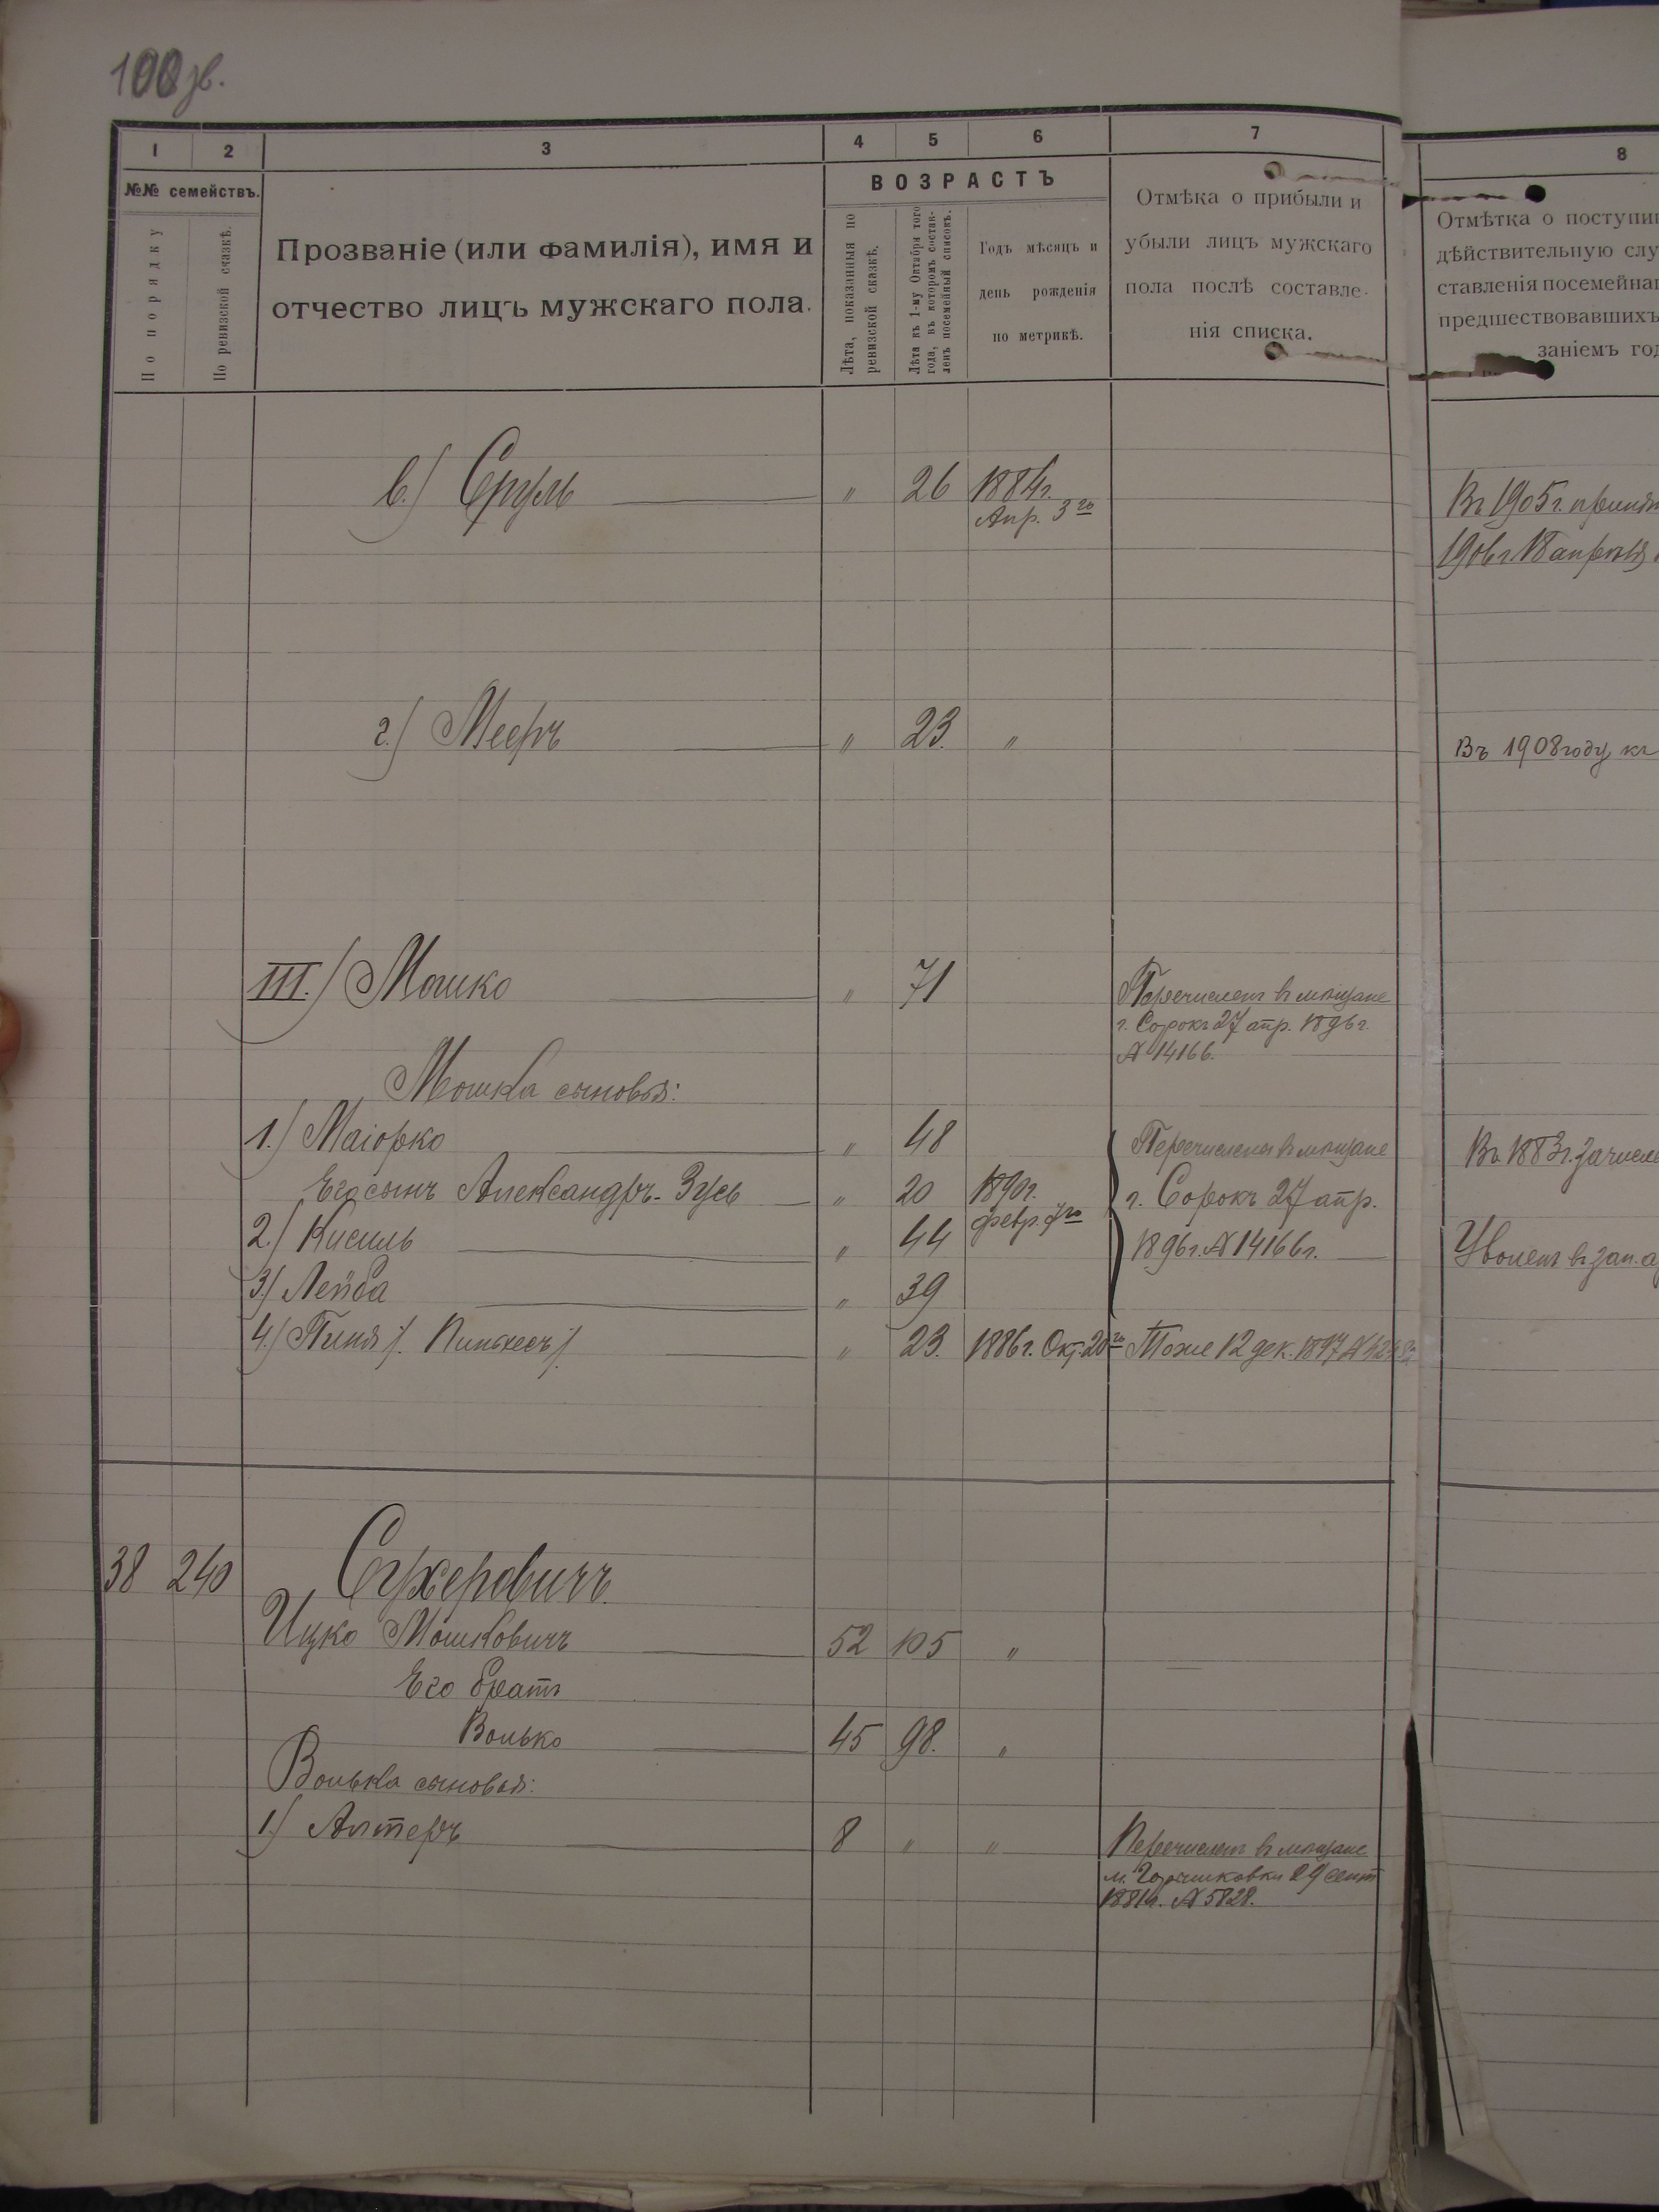 100 зв.
1 2 3 4 5 6 7 8
№№ семействъ.
По порядку
По ревизской сказкѣ.
Прозваніе (или фамилія), имя и
отчество лицъ мужскаго пола.
ВОЗРАСТЪ
Лѣта, показанныя по
ревизской сказкѣ.
Лѣта къ 1-му Октября того
года, въ которомъ состав-
ленъ посемейный списокъ.
Годъ мѣсяцъ и
день рожденія
по метрикѣ.
Отмѣка о прибыли и
убыли лицъ мужскаго
пола послѣ составле-
нія списка.
Отмѣтка о поступи
дѣйствительную слу
ставленія посемейна
предшествовавшихъ
заніемъ го
в.) Сруль " 26 1884г.
Апр. 3го
Въ 1905г. приня
1906г. 18 апрѣля
г.) Мееръ " 23. "
Въ 1908 году к
III.) Мошко " 71 Перечисленъ въ мѣщане
г. Сорокъ 27 апр. 1896г.
№ 14166.
Мошка сыновья:
1.) Маіорко " 48 Перечислены въ мѣщане
Въ 1883г. зачисле
Его сынъ Александръ-Зусь " 20 1890г. г. Сорокъ 27 апр.
февр. 7го
2.) Кисиль " 44 1896г. № 14166г.
Уволенъ въ зап. а
3.) Лейба " 39
4.) Пиня /. Пинхесъ /. " 23. 1886г. Окт. 20го Тоже 12 дек. 1897
38 240 Сухеровичъ.
Ицко Мошковичъ 52 105 "
Его братъ
Волько 45 98. "
Волька сыновья:
1.) Алтеръ 8 " " Перечисленъ въ мѣщане
м. Горышковки 29 сент
1881г. № 5828.